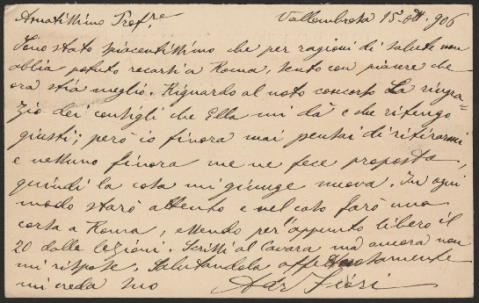 Amatissimo Prof.re Vallombrosa 15. ott. 906
Sono stato spiacentissimo che per ragioni di salute non
abbia potuto recarsi a Roma, sento con piacere che
ora stia meglio. Riguardo al noto concorso La ringra-
zio dei consigli che Ella mi dà e che ritengo
giusti; però io finora mai pensai di ritirarmi
e nessuno finora me ne fece proposta,
quindi la cosa mi giunge nuova. In ogni
modo starò attento e nel caso farò una
corsa a Roma, essendo per l'appunto libero il
20 dalle lezioni. Scritti al Cavara ma ancora non
mi rispose. Salutandola affettuosamente
mi creda suo Adr Fiori